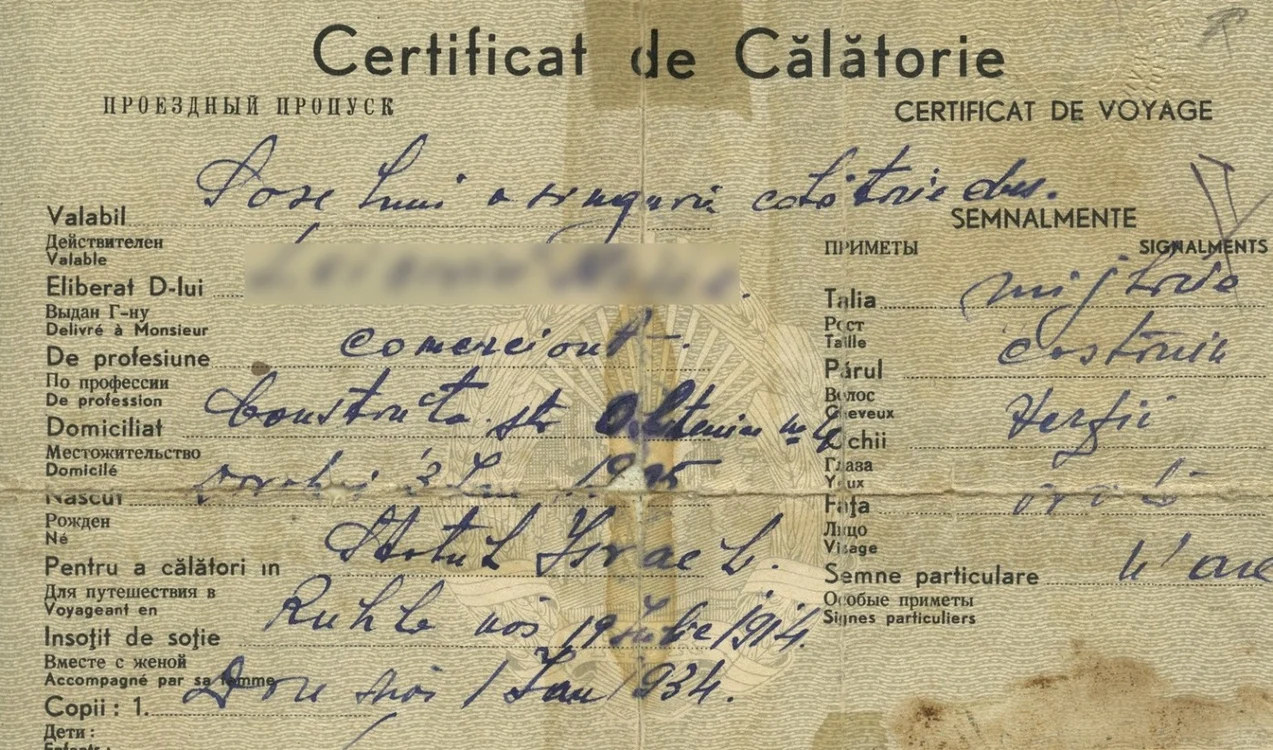 Certificat de Călătorie
ПРОЕЗДНЫЙ ПРОПУСК
CERTIFICAT DE VOYAGE
Valabil Șase luni o singură călătorie dus.
Действителен
Valable
Eliberat D-lui
Выдан Г-ну
Delivré à Monsieur
De profesiune comerciant
По профессии
De profession
Domiciliat Constanța str
Местожительство
Domicilé
Născut 3 Ian
Рожден
Né
Pentru a călători în Statul Israel.
Для путешествия в
Voyageant en
Insoțit de soție Ruhla nas 19 Iulie 1914.
Вместе с женой
Accompagné par sa femme
Copii : 1. nas 1 Ian 1934.
Дети :
Enfants :
SEMNALMENTE
ПРИМЕТЫ SIGNALMENTS
Talia mijlocie
Рост
Taille
Părul castaniu
Волос
Cheveux
Ochii
Глаза
Yeux
Fața ovală
Лицо
Visage
Semne particulare n'are
Особые приметы
Signes particuliers